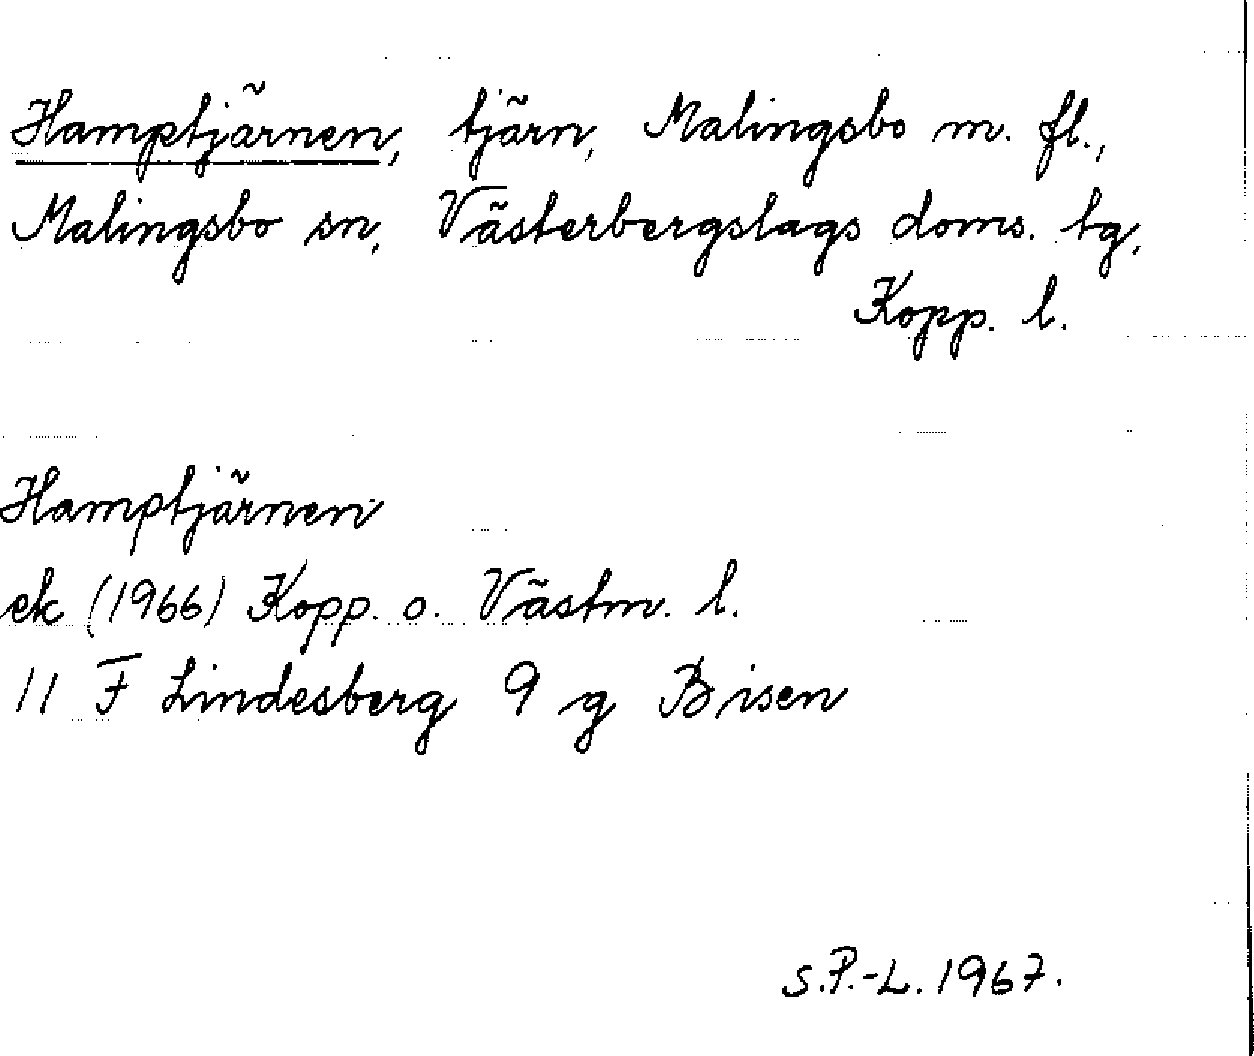 Hamptjärnen, tjärn, Malingsbo m. fl.,
Malingsbo sn, Västerbergslags doms. tg,
Kopp. l.
Hamptjärnen
ek (1966) Kopp. o. Västm. l.
11 F Lindesberg 9 g Bisen
S.P.-L. 1967.